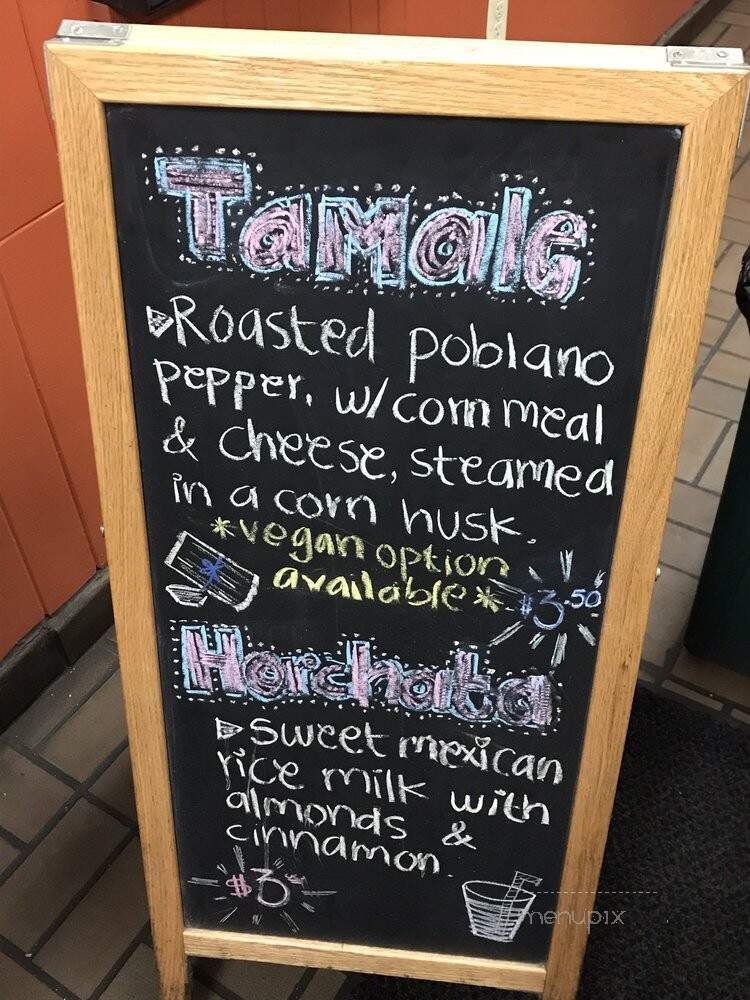 Tamale
Roasted poblano
pepper, w/ corn meal
& cheese, steamed
in a corn husk.
*vegan option
available*
$3.50
Horchata
Sweet mexican
rice milk with
almonds &
cinnamon.
$3
menupix